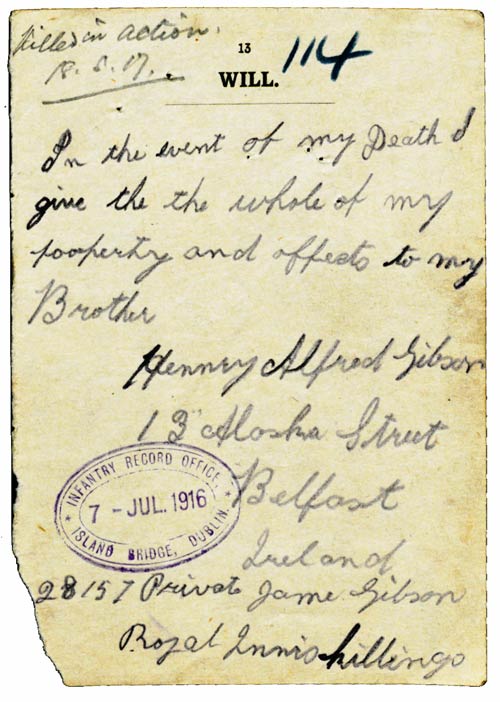 Killed in action.
18.8.17.
13
WILL.
114
In the event of my Death I
give the the whole of my
pooperty and effects to my
Brother
Henney Alfred Gibson
13 Alaska Street
Belfast
Ireland
INFANTRY RECORD OFFICE,
7 - JUL. 1916
ISLAND BRIDGE, DUBLIN.
28157 Private Jame Gibson
Royal Inniskillings